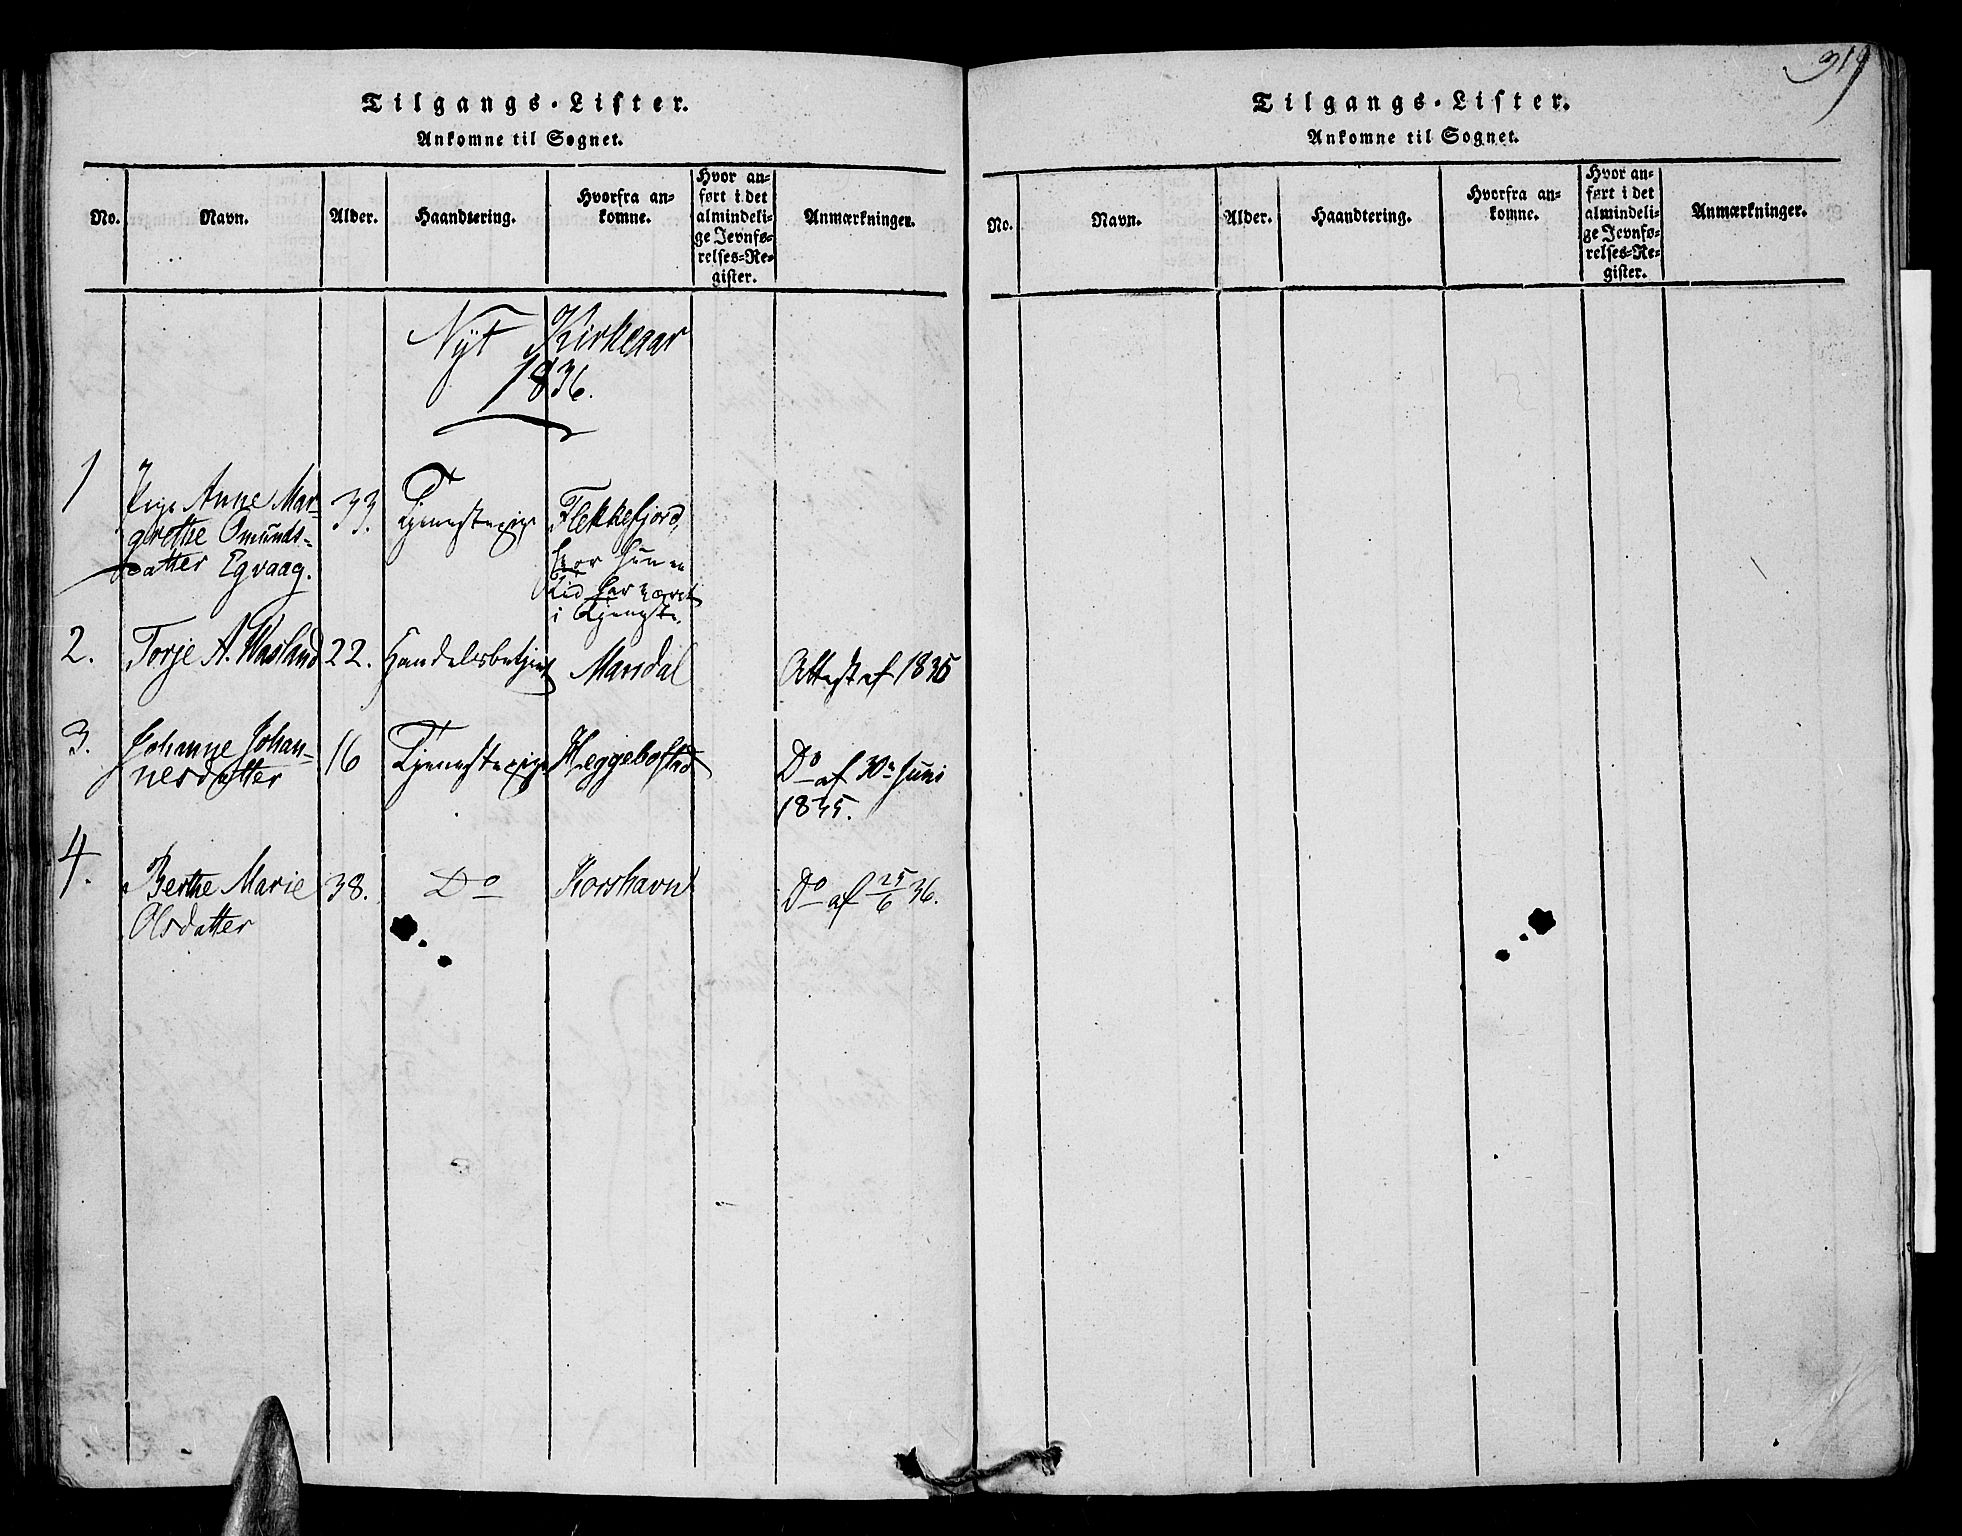 Tilgangs-Lister.
Ankomne til Sognet.
No.
Navn.
Alder.
Haandtering.
Hvorfra an-
komne.
Hvor an-
ført i det
almindeli-
ge Jevnfø-
relses-Re-
gister.
Anmærkninger.
Nyt Kirkeaar
1836.
1
Pige Anne Mar-
grethe Omunds-
datter Egvaag.
33.
Tjenestepige
Flekkefjord,
hvor hun en
Tid har været
i Tjeneste.
2.
Torje A. Wasland
22.
Handelsbetjent
Mandal
Attest af 1835
3.
Johanne Johan-
nesdatter
16
Tjenestepige
Heggebostad
Do af 30te Juni
1835.
4.
Berthe Marie
Olsdatter
38.
Do
Korshavn
Do af 25/6 36.
319
Tilgangs-Lister.
Ankomne til Sognet.
No.
Navn.
Alder.
Haandtering.
Hvorfra an-
komne.
Hvor an-
ført i det
almindeli-
ge Jevnfø-
relses-Re-
gister.
Anmærkninger.